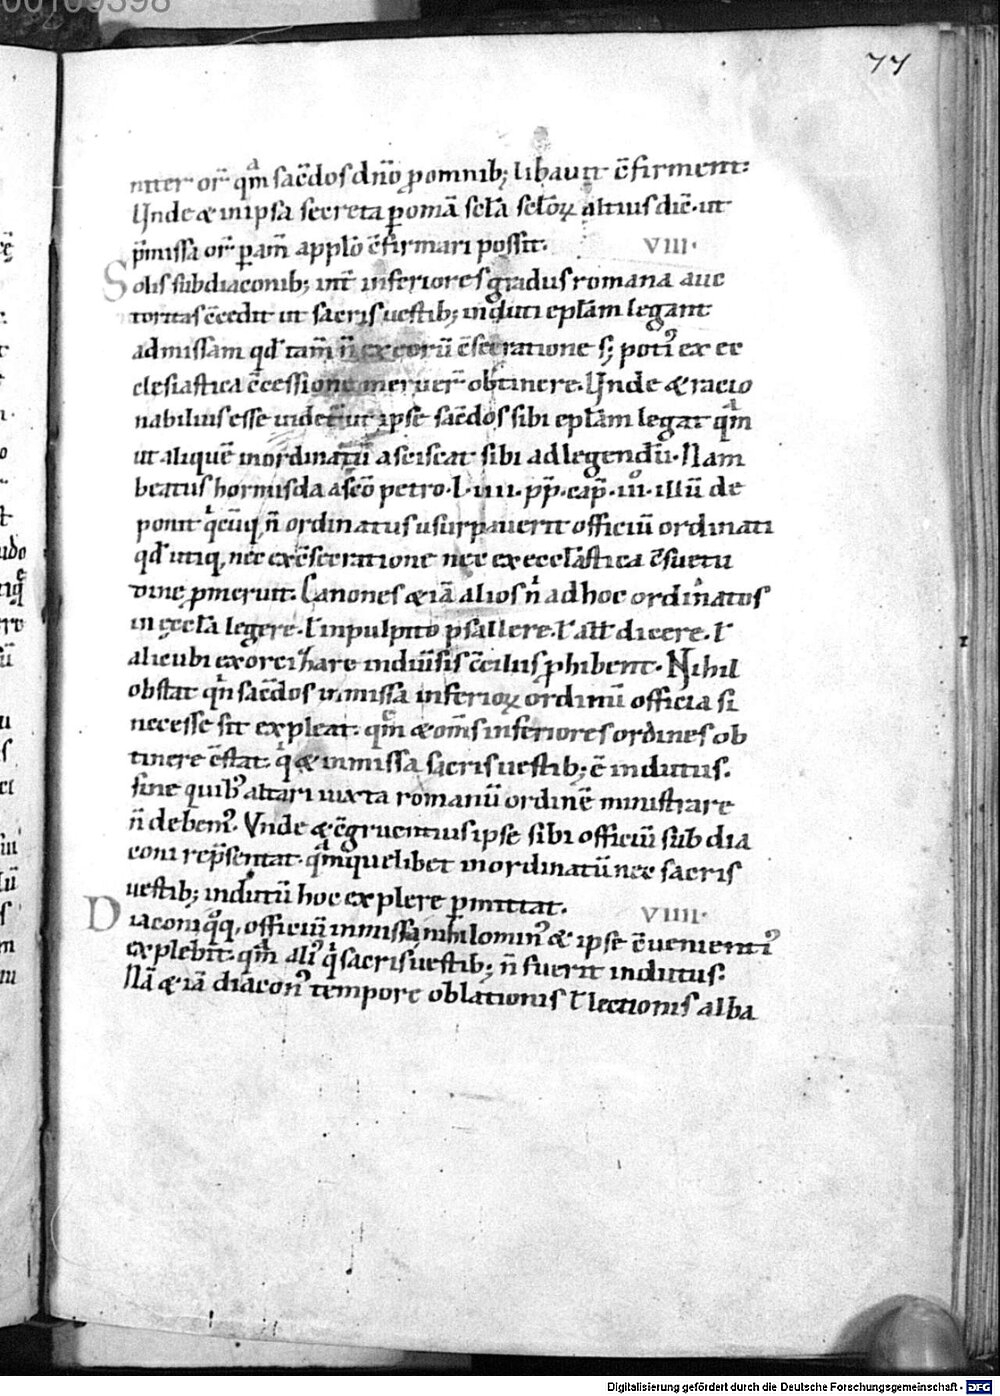 77
niter or̄ qm̄ sac̄dos dn̄o ꝓ omnib; libauit c̄firment:
Unde & in ipsa secreta ꝑ omā scl̄a scl̄oꝝ altius dic̄ ut
p̄missa or̄ ꝑ am̄ appl̄o c̄firmari possit. VIII·
Solis subdiaconib; int̄ inferiores gradus romana auc
toritas c̄cedit ut sacris uestib; induti epl̄am legant
ad missam qd̄ tam̄ n̄ ex eorū c̄secratione s; poti᾽ ex ec
clesiastica c̄cessione meruer̄ obtinere. Unde & racio
nabilius esse uidet̄ ut ipse sac̄dos sibi epl̄am legat qm̄
ut aliquē inordinatū asciscat sibi ad legendū. Nam
beatus hormisda a sc̄o petro · l · IIII · pp̄ · cap̄ · III · illū de
ponit qͥcūq; n̄ ordinatus usurpauerit officiū ordinati
qd̄ utiq; nec ex c̄secratione nec ex eccl̄astica c̄suetu
dine ꝓmeruit. Canones & iā alios n̄ ad hoc ordinatos
in ęccl̄a legere. ł in pulpito psallere. ł all̄ dicere. ł
alicubi exorcizare in diūsis c̄ciliis ꝓhibent. Nihil
obstat qn̄ sac̄dos in missa inferioꝝ ordinū officia si
necesse sit expleat. qm̄ & om̄s inferiores ordines ob
tinere c̄stat. qͥ & in missa sacris uestib; ē indutus.
sine quib᾽ altari iuxta romanū ordinē ministrare
n̄ debem᾽. Vnde & c̄gruentius ipse sibi officiū subdia
coni rep̄sentat. qm̄ quelibet inordinatū nec sacris
uestib; indutū hoc explere ꝑmittat. VIIII·
Diaconi qͦq; officiū in missa nihilomin᾽ & ipse c̄uenienti᾽
explebit. qm̄ ali᾽ qͥ sacris uestib; n̄ fuerit indutus.
Nā & iā diacon᾽ tempore oblationis ł lectionis alba
Digitalisierung gefördert durch die Deutsche Forschungsgemeinschaft - DFG